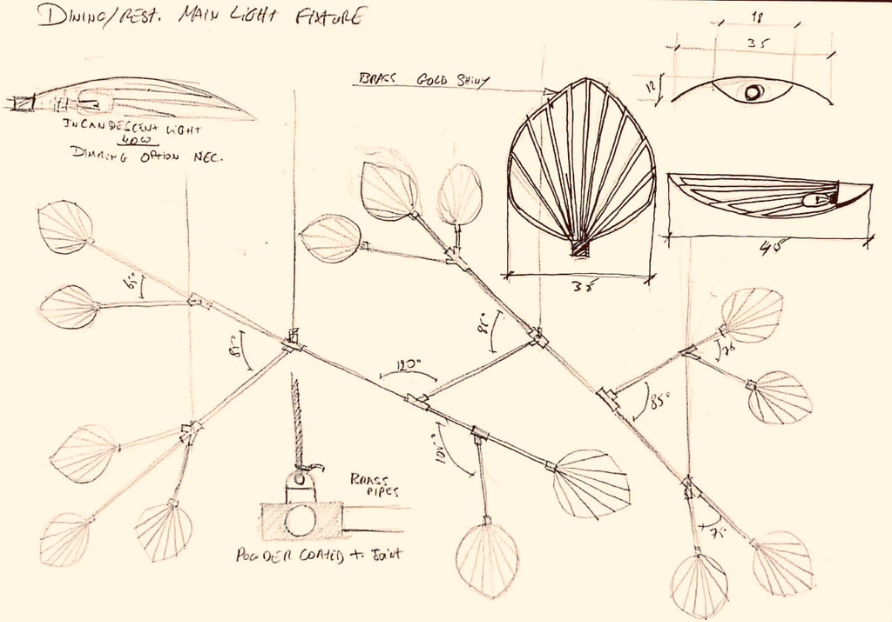 DINING/REST. MAIN LIGHT FIXTURE
18
35
12
BRASS GOLD SHINY
INCANDESCENT LIGHT
40W
DIMMING OPTION NEC.
45
35
85°
85°
120°
85°
75
BRASS
PIPES
POWDER COATED + JOINT